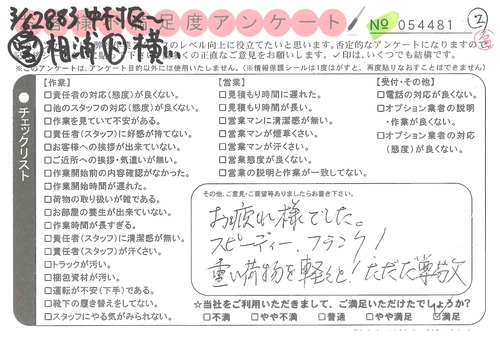 3/12883 中村区～
お客様満足度アンケート
№ 054481
②
相浦 横
のレベル向上に役立てたいと思います。否定的なアンケートになりますので
正直なご意見をお願いします。✓印は、いくつでも結構です。
※このアンケートは、アンケート目的以外には使用いたしません。(情報保護シールは1度はがすと、再度貼りなおすことはできません)
チェックリスト
【作業】
□責任者の対応(態度)が良くない。
□他のスタッフの対応(態度)が良くない。
□作業を見ていて不安がある。
□責任者(スタッフ)に好感が持てない。
□お客様への挨拶が出来ていない。
□ご近所への挨拶・気遣いが無い。
□作業開始前の内容確認がなかった。
□作業開始時間が遅れた。
□荷物の取り扱いが雑である。
□お部屋の養生が出来ていない。
□作業時間が長すぎる。
□責任者(スタッフ)に清潔感が無い。
□責任者(スタッフ)が汗くさい。
□トラックが汚い。
□梱包資材が汚い。
□運転が不安(下手)である。
□靴下の履き替えをしてない。
□スタッフにやる気がみられない。
【営業】
□見積もり時間に遅れた。
□見積もり時間が長い。
□営業マンに清潔感が無い。
□営業マンが煙草くさい。
□営業マンが汗くさい。
□営業態度が良くない。
□営業の説明と作業が一致してない。
【受付・その他】
□電話の対応が良くない。
□オプション業者の説明
・作業が良くない。
□オプション業者の対応
(態度)が良くない。
その他、ご意見・ご要望等ありましたらお書き下さい。
お疲れ様でした。
スピーディー、フランク!
重い荷物を軽々と!ただただ尊敬
☆当社をご利用いただきまして、ご満足いただけたでしょうか?
□不満 □やや不満 □普通 □やや満足 ☑満足